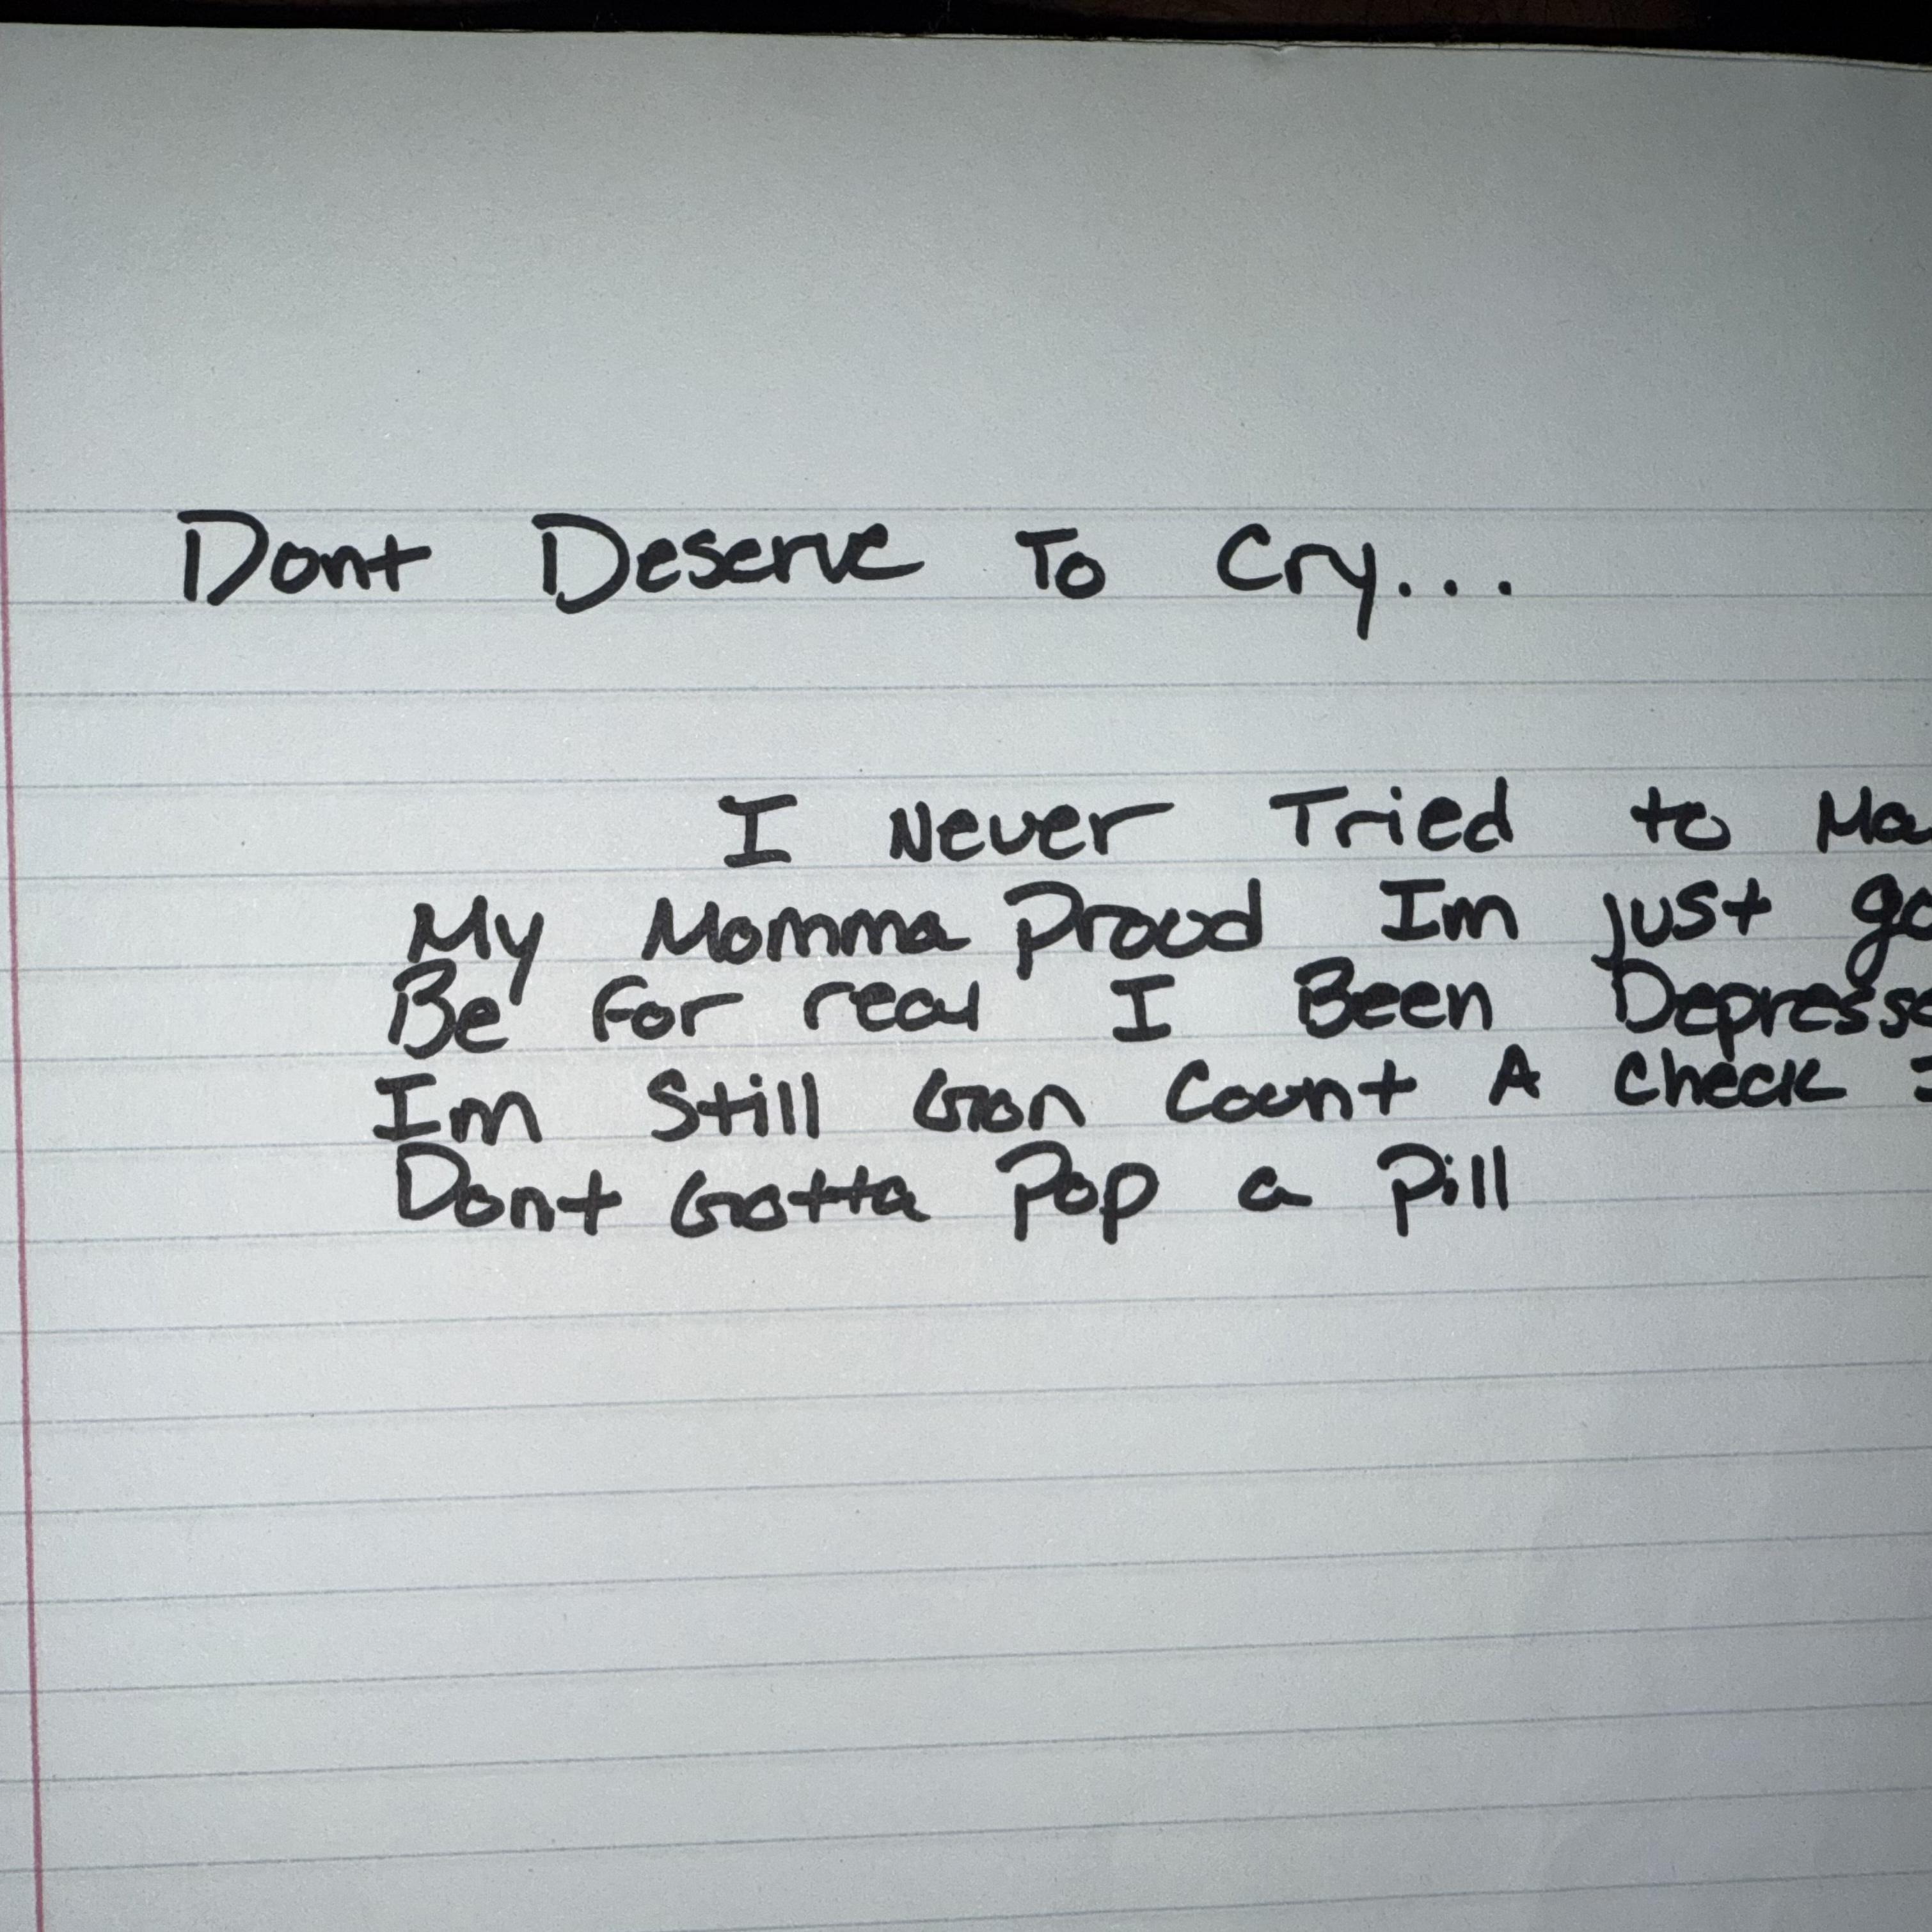 Dont Deserve To Cry...
I Never Tried to
My Momma Proud Im just
Be for real I Been
Im Still Gon Count A Check
Dont Gotta Pop a Pill